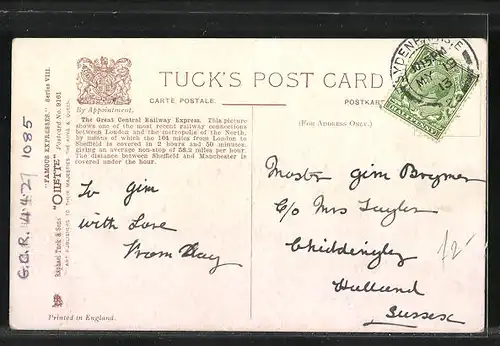 TUCK'S POST CARD
By Appointment.
CARTE POSTALE.
POSTKAR
(FOR ADDRESS ONLY.)
The Great Central Railway Express. This picture
shows one of the most recent railway connections
between London and the metropolis of the North,
by means of which the 164 miles from London to
Sheffield is covered in 2 hours and 50 minutes,
giving an average non-stop of 58.2 miles per hour.
The distance between Sheffield and Manchester is
covered under the hour.
"FAMOUS EXPRESSES." Series VIII.
Raphael Tuck & Sons' "OILETTE" Postcard No. 9161
ART PUBLISHERS TO THEIR MAJESTIES THE KING & QUEEN.
G.C.R. 4.4.2T 1085
To Jim
with Love
From May
Master Jim
C/o Mrs Taylor
Chiddingly
Sussex
£2-
MY 13
Printed in England.